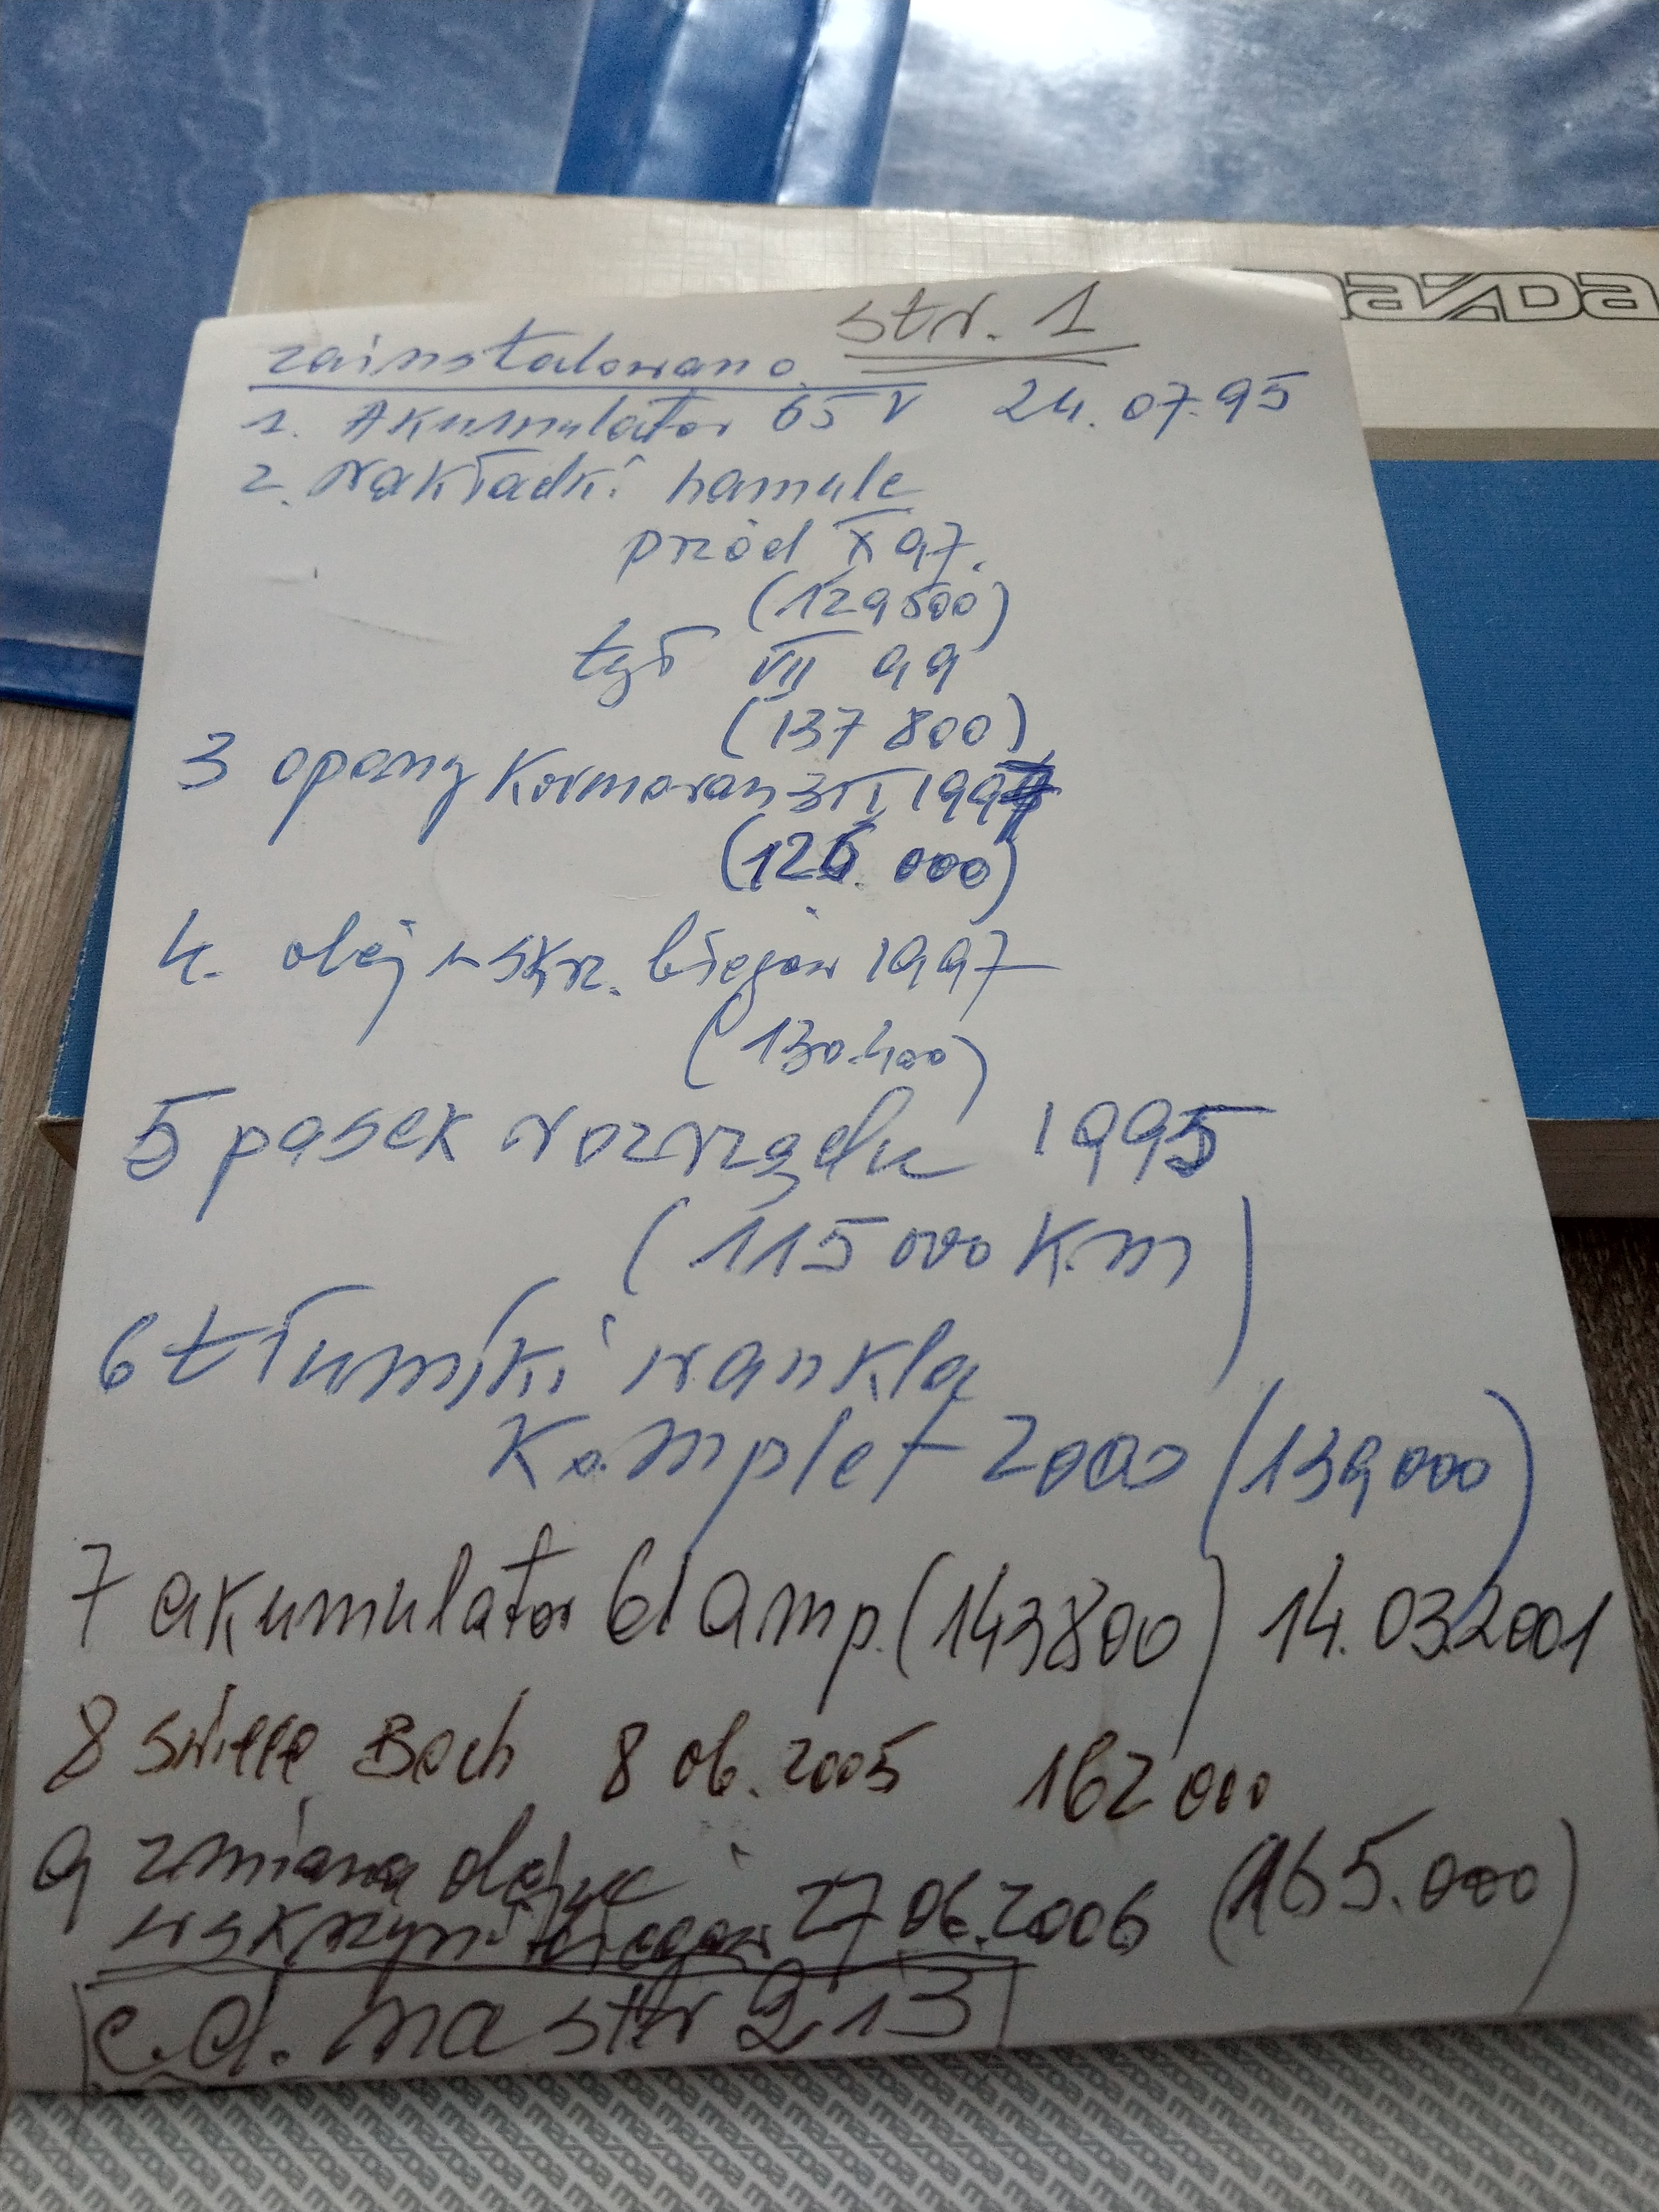 mazda
str. 1
zainstalowano
1. Akumulator 65 V 24.07.95
2. nakładki hamulc
przód X 97.
(129500)
tył VII 99
(137 800)
3 opony Kormoran 3 1997
(126.000)
4. olej w skrz. biegów 1997
(130.400)
5 pasek rozrządu 1995
(115 000 km)
6 tłumiki wankla
Komplet 2000 (139000)
7 akumulator 61 amp. (143800) 14.03.2001
8 świece Boch 8 06.2005 162 000
9 zmiana oleju
w skrzyni biegów 27 06.2006 (165.000)
c.d. na str 2 i 3